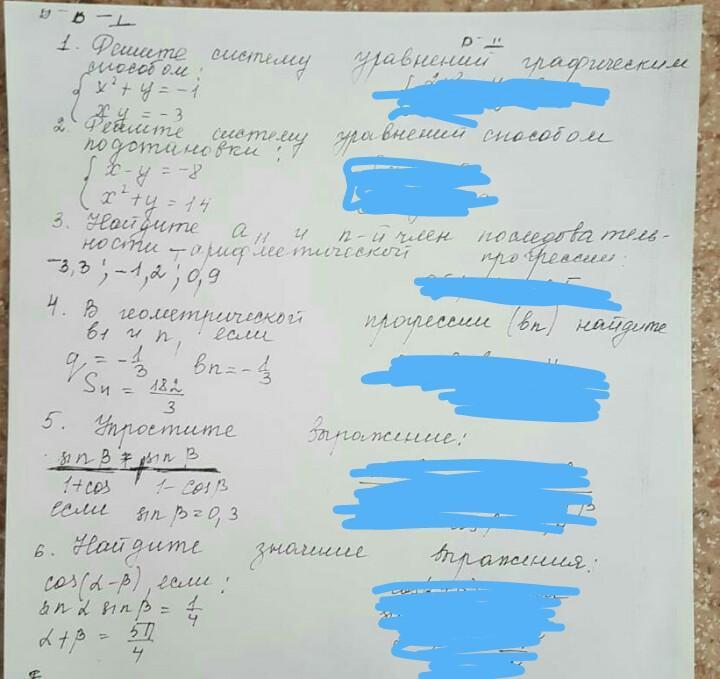 1. Решите систему уравнений графическим
способом:
x² + y = -1
xy = -3
2. Решите систему уравнений способом
подстановки:
x - y = -8
x² + y = 14
3. Найдите a и n-й член последователь-
ности - арифметической прогрессии:
-3,3; -1,2; 0,9
4. В геометрической прогрессии (bn) найдите
b1 и n, если
q = -1/3 bn = -1/3
Sn = 182/3
5. Упростите выражение:
sin β sin β
1+cos 1-cosβ
если sin β = 0,3
6. Найдите значие выражения:
cos(α-β), если:
sin α sin β = 1/4
α + β = 5π/4